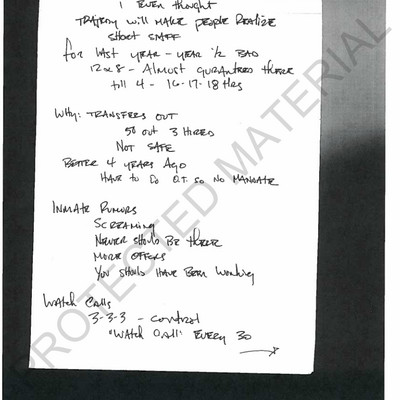 I EVEN thought
TRAGEDY will MAKE PEOPLE REALIZE
SHORT STAFF
for LAST YEAR - YEAR 1/2 BAD
12x8 - Almost GURANTEED there
till 4 - 16-17-18 HRS
Why: TRANSFERS OUT
50 out 3 HIRED
NOT SAFE
BETTER 4 YEARS AGO
HAVE to Do O.T. so NO MANDATE
INMATE RUMORS
SCREAMING
NEVER SHOULD BE there
MORE OFFERS
YOU SHOULD HAVE BEEN Working
Watch Calls
3-3-3 - control
"Watch Call" EVERY 30
PROTECTED MATERIAL